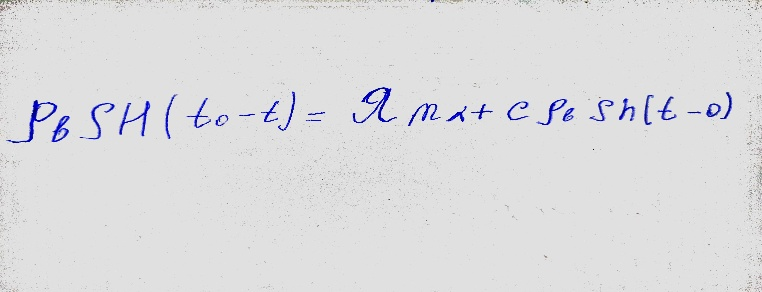 ρв SH(t₀-t)= λ mл+ c ρв Sh(t-0)